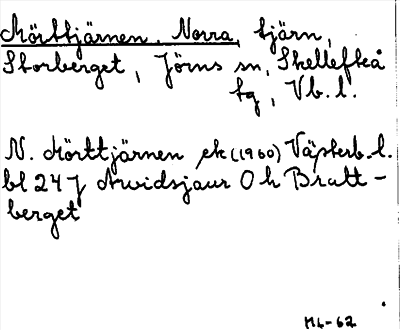 Mörttjärnen, Norra, tjärn,
Storberget, Jörns sn, Skellefteå
tg, Vb. l.
N. Mörttjärnen ek (1960) Västerb. l.
bl 24 J Arvidsjaur 0 h Bratt-
berget
M6-62